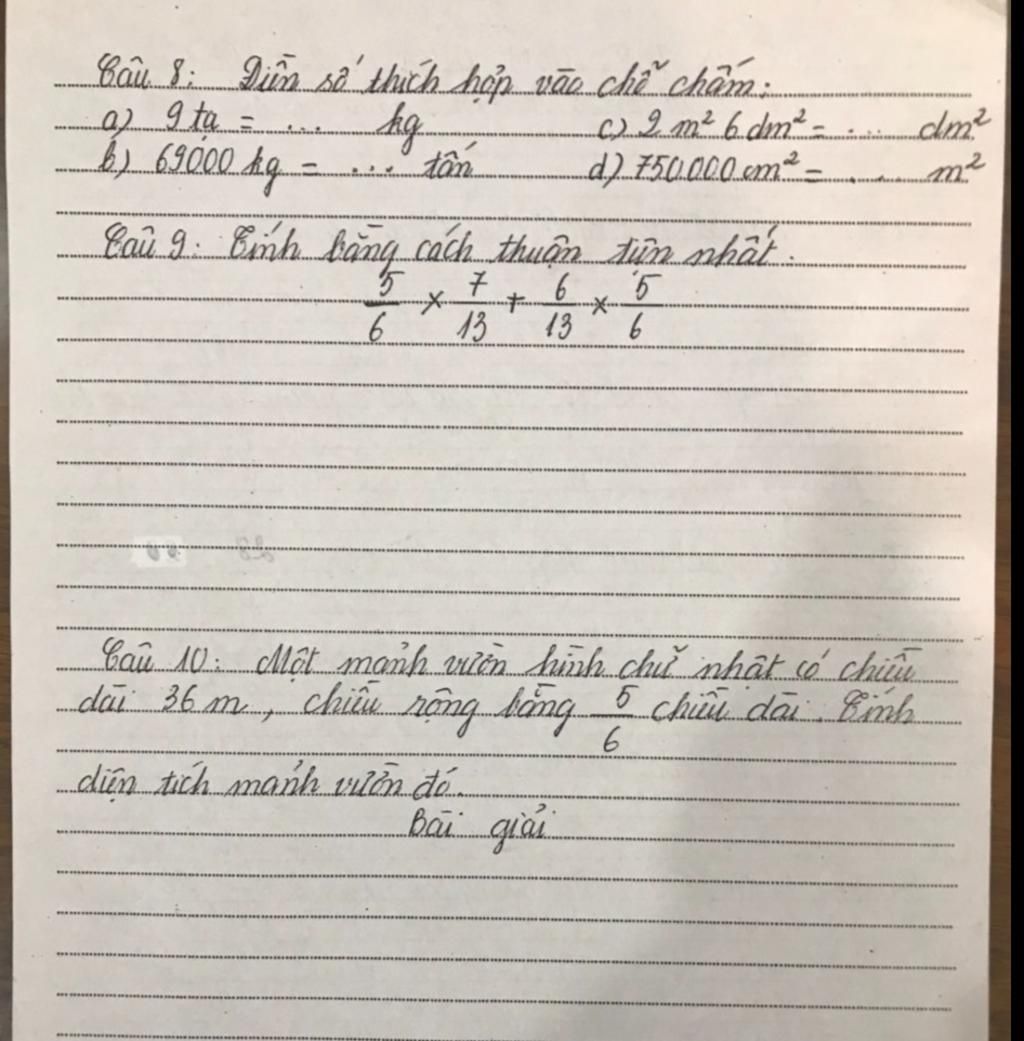 Câu 8: Điền số thích hợp vào chỗ chấm:
a) 9 tạ = ... kg c) 2 m² 6 dm² = ... dm²
b) 69000 kg = ... tấn d) 750000 cm² = ... m²
Câu 9: Tính bằng cách thuận tiện nhất.
5/6 × 7/13 + 6/13 × 5/6
Câu 10: Một mảnh vườn hình chữ nhật có chiều
dài 36 m, chiều rộng bằng 5/6 chiều dài. Tính
diện tích mảnh vườn đó.
Bài giải